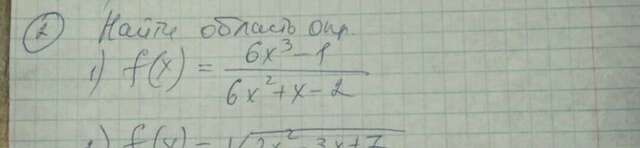 2 Найти область опр.
1) f(x) = (6x³-1)/(6x²+x-2)
f(x) = √